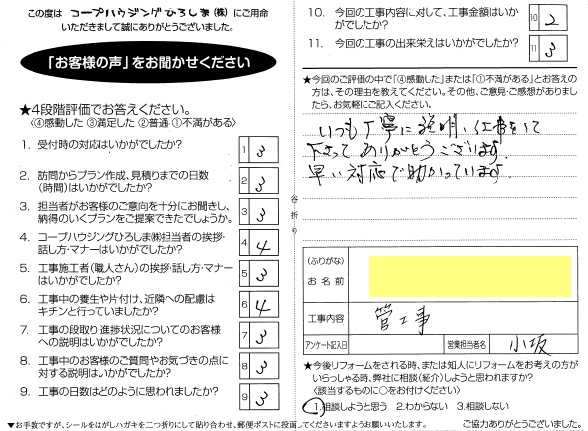 この度は コープハウジングひろしま(株) にご用命
いただきまして誠にありがとうございました。
「お客様の声」をお聞かせください
★4段階評価でお答えください。
〈④感動した ③満足した ②普通・①不満がある〉
1. 受付時の対応はいかがでしたか? 1 3
2. 訪問からプラン作成、見積りまでの日数
(時間)はいかがでしたか? 2 3
3. 担当者がお客様のご意向を十分にお聞きし、
納得のいくプランをご提案できたでしょうか。 3 3
4. コープハウジングひろしま㈱担当者の挨拶・
話し方・マナーはいかがでしたか? 4 4
5. 工事施工者(職人さん)の挨拶・話し方・マナー
はいかがでしたか? 5 3
6. 工事中の養生や片付け、近隣への配慮は
キチンと行っていましたか? 6 4
7. 工事の段取り・進捗状況についてのお客様
への説明はいかがでしたか? 7 3
8. 工事中のお客様のご質問やお気づきの点に
対する説明はいかがでしたか? 8 3
9. 工事の日数はどのように思われましたか? 9 3
▼お手数ですが、シールをはがしハガキを二つ折りにして貼り合わせ、郵便ポストに投函してくださいますようお願いいたします。
谷折り
10. 今回の工事内容に対して、工事金額はいか
がでしたか? 10 2
11. 今回の工事の出来栄えはいかがでしたか? 11 3
★今回のご評価の中で「④感動した」または「①不満がある」とお答えの
方は、その理由を教えてください。その他、ご意見・ご感想がありました
ら、お気軽にご記入ください。
いつも丁寧に説明、仕事をして
下さって ありがとうございます。
早い対応で助かっています。
(ふりがな)
お名前
工事内容 管工事
アンケート記入日 営業担当者名 小坂
★今後リフォームをされる時、または知人にリフォームをお考えの方が
いらっしゃる時、弊社に相談(紹介)しようと思われますか?
〈該当するものに○をお付けください〉
1.相談しようと思う 2.わからない 3.相談しない
ご協力ありがとうございました。